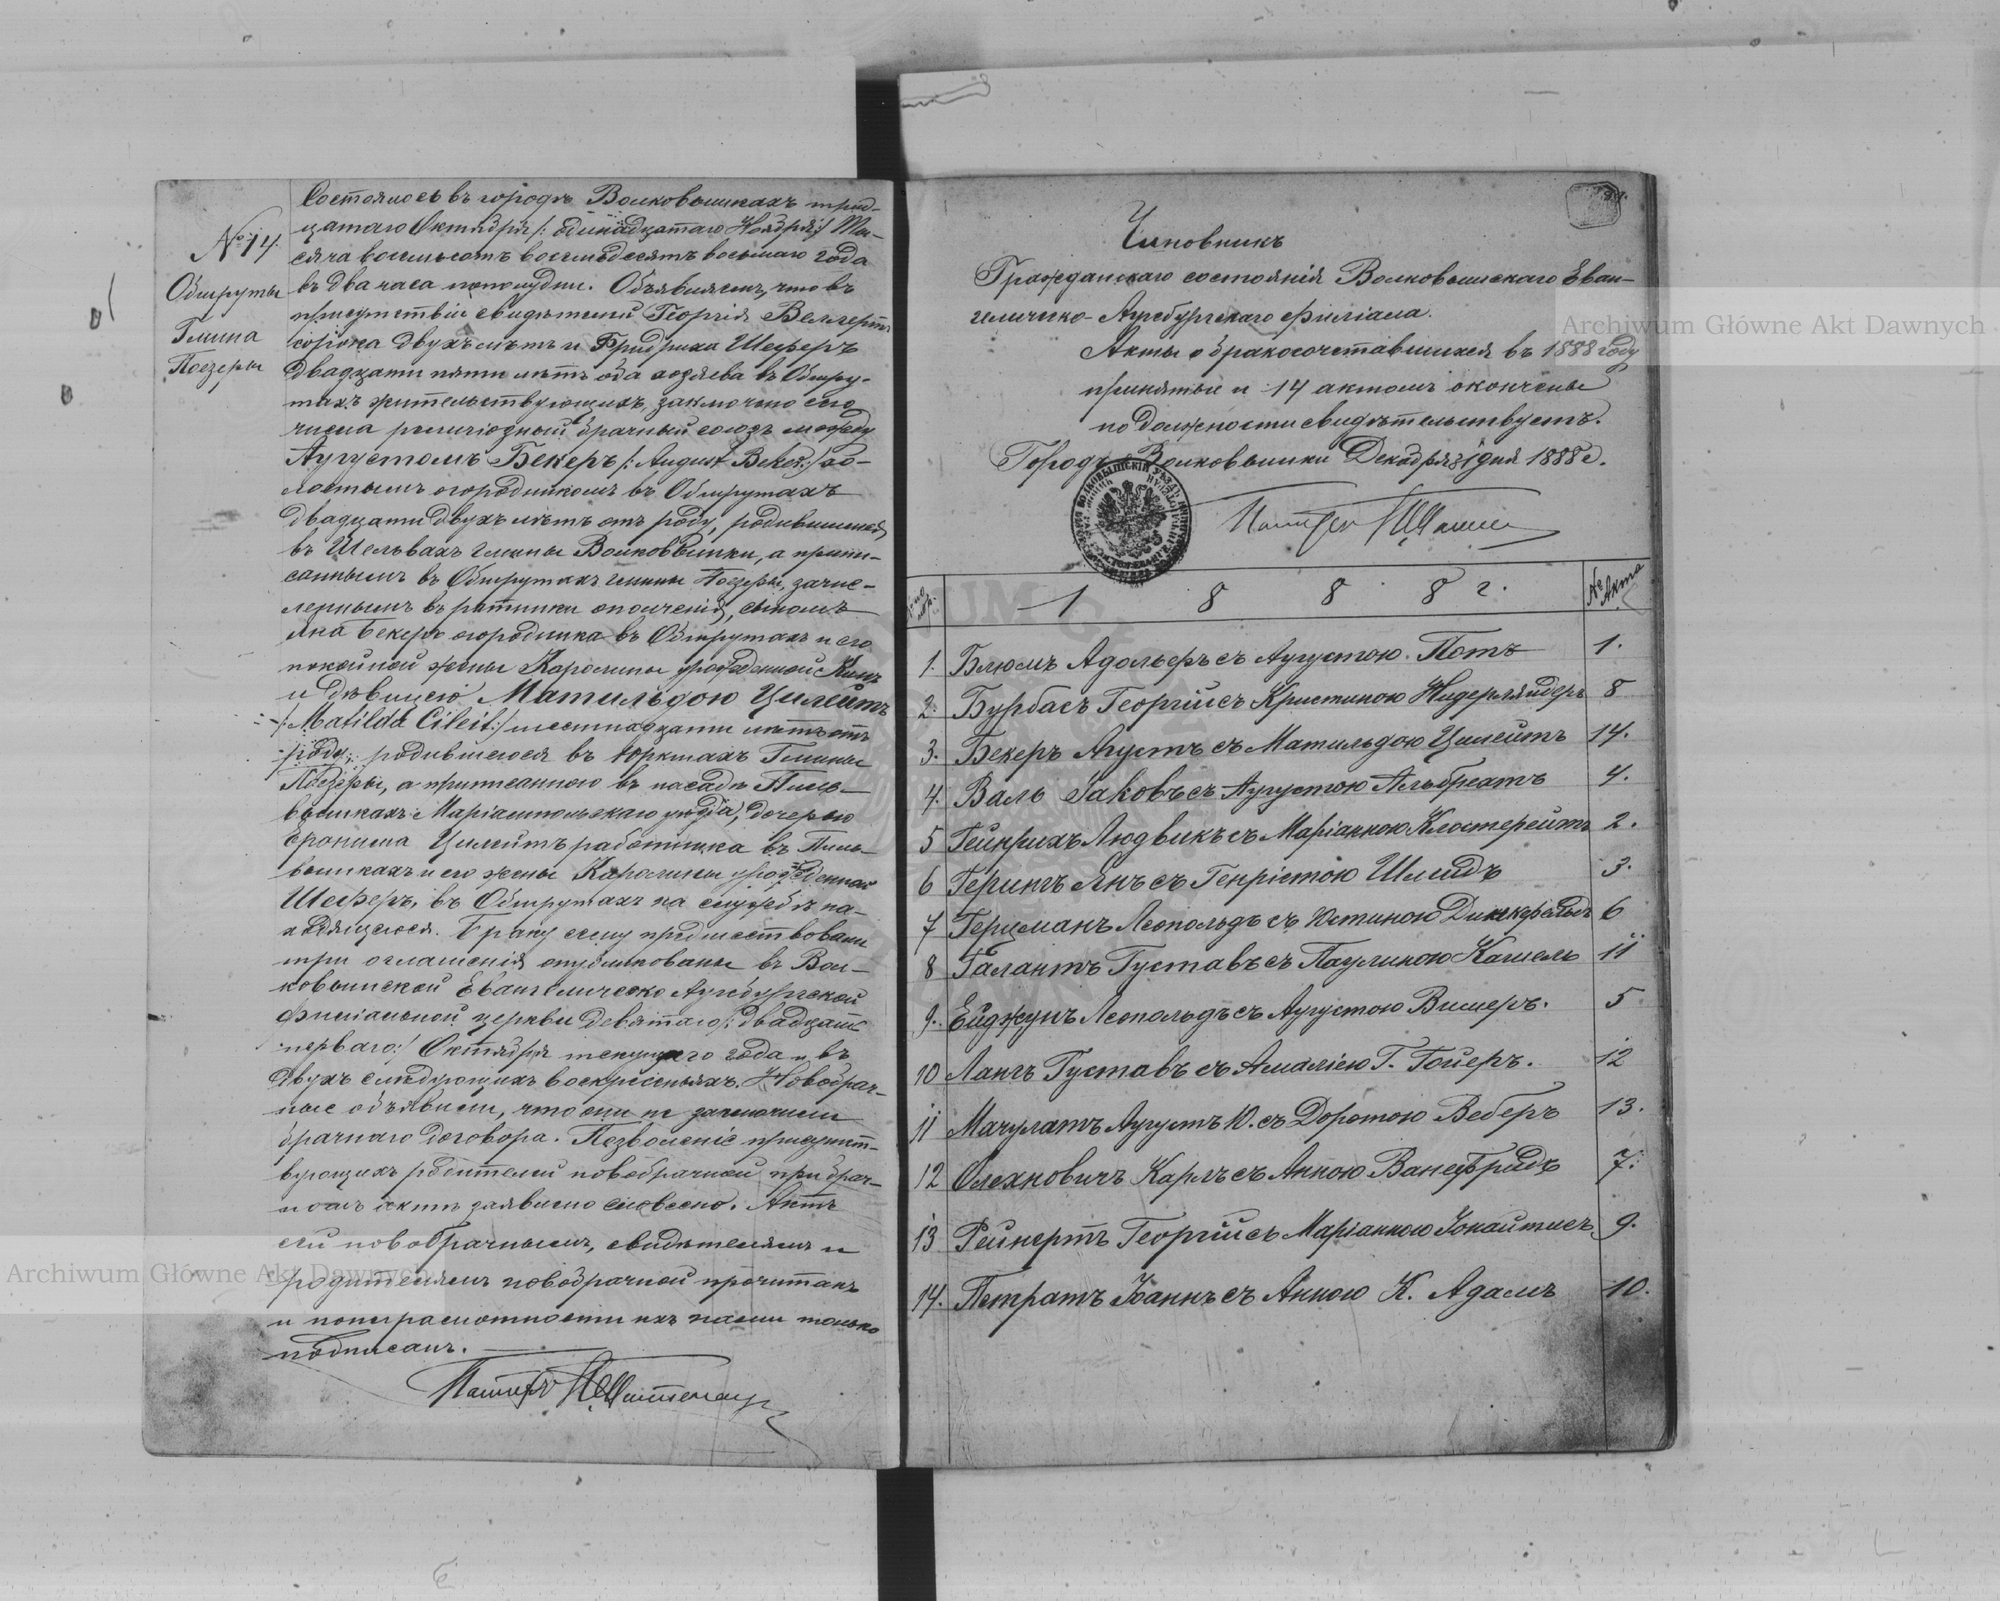 № 14.
Обшруты
Гмина
Поезеры
Состоялось въ городѣ Волковышкахъ трид-
цатаго Октября /: одиннадцатаго Ноября:/ Ты-
сяча восемьсотъ восемьдесятъ восьмаго года
въ два часа пополудни. Объявляемъ, что въ
присутствіи свидѣтелей Георгія Веллертъ
сорока двухъ лѣтъ и Фридриха Шеферъ
двадцати пяти лѣтъ оба хозяева въ Обшру-
тахъ жительствующихъ, заключенъ сего
числа религіозный брачный союзъ между
Августомъ Бекеръ /: August Beker:/ хо-
лостымъ огородникомъ въ Обшрутахъ
двадцати двухъ лѣтъ отъ роду, родившимся
въ Шельвахъ гмины Волковышки, а припи-
саннымъ въ Обшрутахъ гмины Поезеры, зачис-
леннымъ въ ратники ополченія, сыномъ
Яна Бекеръ огородника въ Обшрутахъ и его
покойной жены Каролины урожденной
и дѣвицею Матильдою Цилейтъ
/: Matilda Cileit:/ шестнадцати лѣтъ отъ
роду, родившеюся въ Юркшахъ Гмины
Поезеры, а приписанною въ посадѣ Пиль-
вишкахъ Маріампольскаго уѣзда, дочерью
Еронима Цилейтъ работника въ Пиль-
вишкахъ и его жены Каролины урожденной
Шеферъ, въ Обшрутахъ на службѣ на-
ходящеюся. Браку сему предшествовали
три оглашенія опубликованы въ Вол-
ковышской Евангелическо Аугсбургской
филіальной церкви девятаго /: двадцать
перваго:/ Октября текущаго года и въ
двухъ слѣдующихъ воскресеньяхъ. Новобрач-
ные объявили, что они не заключили
брачнаго договора. Позволеніе присутст-
вующихъ родителей новобрачной при брач-
номъ актѣ заявлено словесно. Актъ
сей новобрачнымъ, свидѣтелямъ и
родителямъ новобрачной прочитанъ
и по неграмотности ихъ нами только
подписанъ.
Пасторъ
Чиновникъ
Гражданскаго состоянія Волковышскаго Еван-
гелическо-Аугсбургскаго филіала.
Акты о бракосочетавшихся въ 1888 году
принятые и 14 актомъ окончены
по должности свидѣтельствуетъ.
Городъ Волковышки Декабря 31 дня 1888 г.
Пасторъ
1 8 8 8 г. № Акта
1. Блюмъ Адольфъ съ Августою Потъ 1.
2. Бурбасъ Георгій съ Кристиною Нидерляндеръ 8
3. Бекеръ Агустъ съ Матильдою Цилейтъ 14.
4. Валь Іаковъ съ Аугустою Альбрехтъ 4.
5 Гейнрихъ Людвикъ съ Маріанною Клостерейтъ 2.
6 Герингъ Янъ съ Генріетою Шмидъ 3.
7 Герцманъ Леопольдъ съ Юстиною 6
8 Галантъ Густавъ съ Паулиною Кашель 11
9. Ейджунъ Леопольдъ съ Аугустою Вишеръ. 5
10 Лангъ Густавъ съ Амаліею Г. Гойеръ. 12
11 Мачулатъ Аугустъ Ю. съ Доротою Веберъ 13.
12 Олехновичъ Карлъ съ Анною Ванефридъ 7.
13 Рейнертъ Георгій съ Маріанною Іонайтисъ 9.
14. Петратъ Іоаннъ съ Анною К. Адамъ 10.
Archiwum Główne Akt Dawnych
Archiwum Główne Akt Dawnych